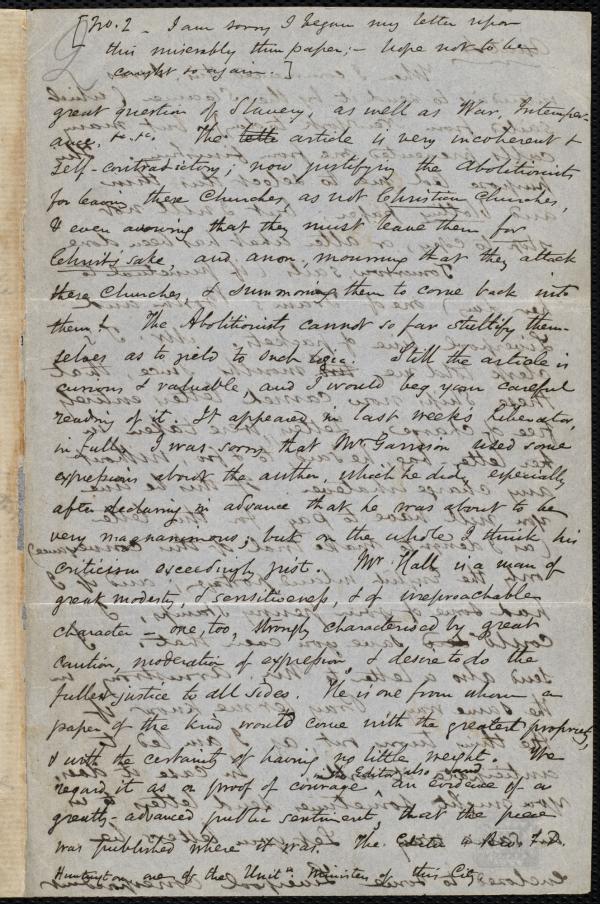 [No. 2 - I am sorry I began my letter upon
this miserably thin paper; - hope not to be
caught so again.]
great question of Slavery, as well as War, Intemper-
ance, &c. &c. The article is very incoherent &
self-contradictory; now justifying the Abolitionists
for leaving these Churches, as not Christian Churches,
& even avowing that they must leave them for
Christ's sake, and anon, mourning that they attack
these Churches & summoning them to come back into
them! The Abolitionists cannot so far stultify them-
selves as to yield to such logic. Still the article is
curious & valuable, and I would beg your careful
reading of it. It appeared in last week's Liberator,
in full. I was sorry that Mr. Garrison used some
expressions about the author, which he did, especially
after declaring in advance that he was about to be
very magnanimous; but on the whole I think his
criticism exceedingly just. Mr. Hall is a man of
great modesty, & sensitiveness, & of irreproachable
character - one, too, strongly characterised by great
caution, moderation of expression, & desire to do the
fullest justice to all sides. He is one from whom a
paper of the kind would come with the greatest propriety,
& with the certainty of having no little weight. We
regard it as a proof of courage in the Editor, also and an evidence of a
greatly-advanced public sentiment, that the piece
was published where it was. The Editor is Rev. F. D.
Huntington, one of the Unitn. Ministers of this City.